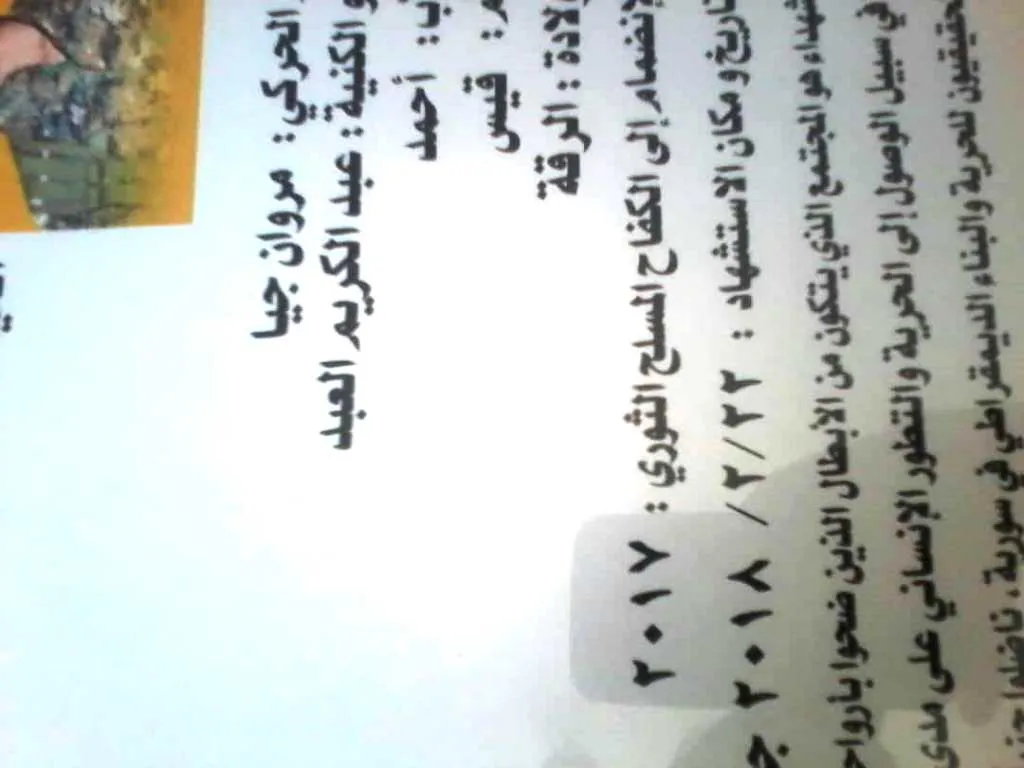 الحركي: مروان جيا
والكنية: عبد الكريم العبد
ب: أحمد
م: قيس
لادة: الرقة
لإنضمام إلى الكفاح المسلح الثوري: ٢٠١٧
تاريخ و مكان الاستشهاد: ٢/٢٢/ ٢٠١٨
شهداء هو المجتمع الذي يتكون من الابطال الذين ضحوا بارواح
في سبيل الوصول إلى الحرية والتطور الإنساني على مدى
حقيقيون للحرية والبناء الديمقراطي في سورية، ناضلوا